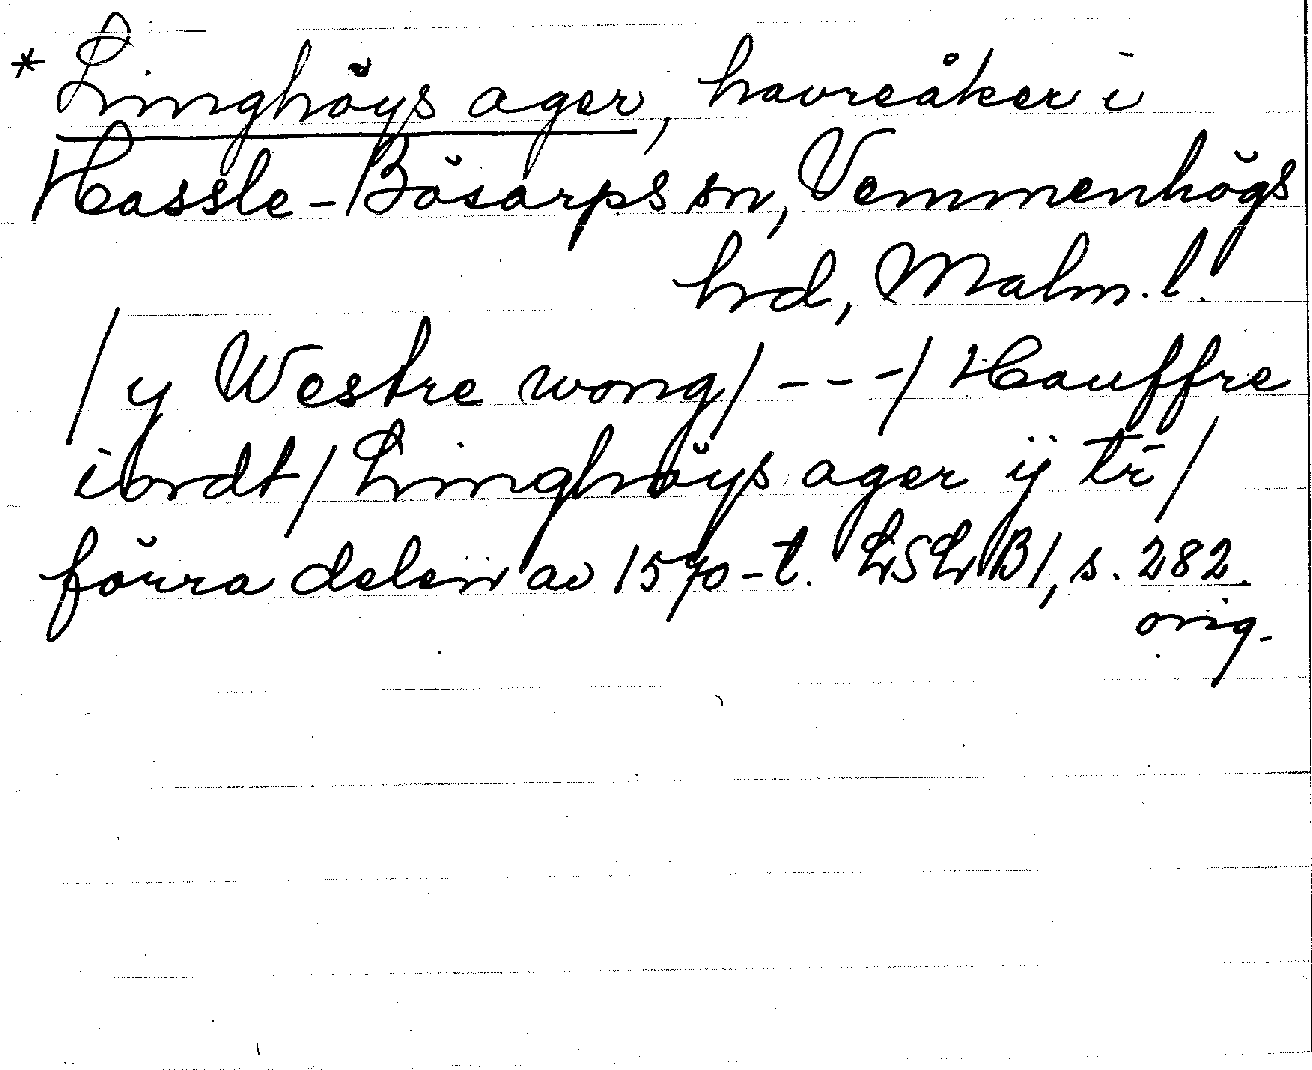 * Linghöys ager, havreåker i
Hassle-Bösarps sn, Vemmenhögs
hd, Malm. l.
/ y Westre wong / - - - / Hauffre
iordt / Linghöys ager ij tr̄ /
förra delen av 1570-t. LSLB1, s. 282.
orig.